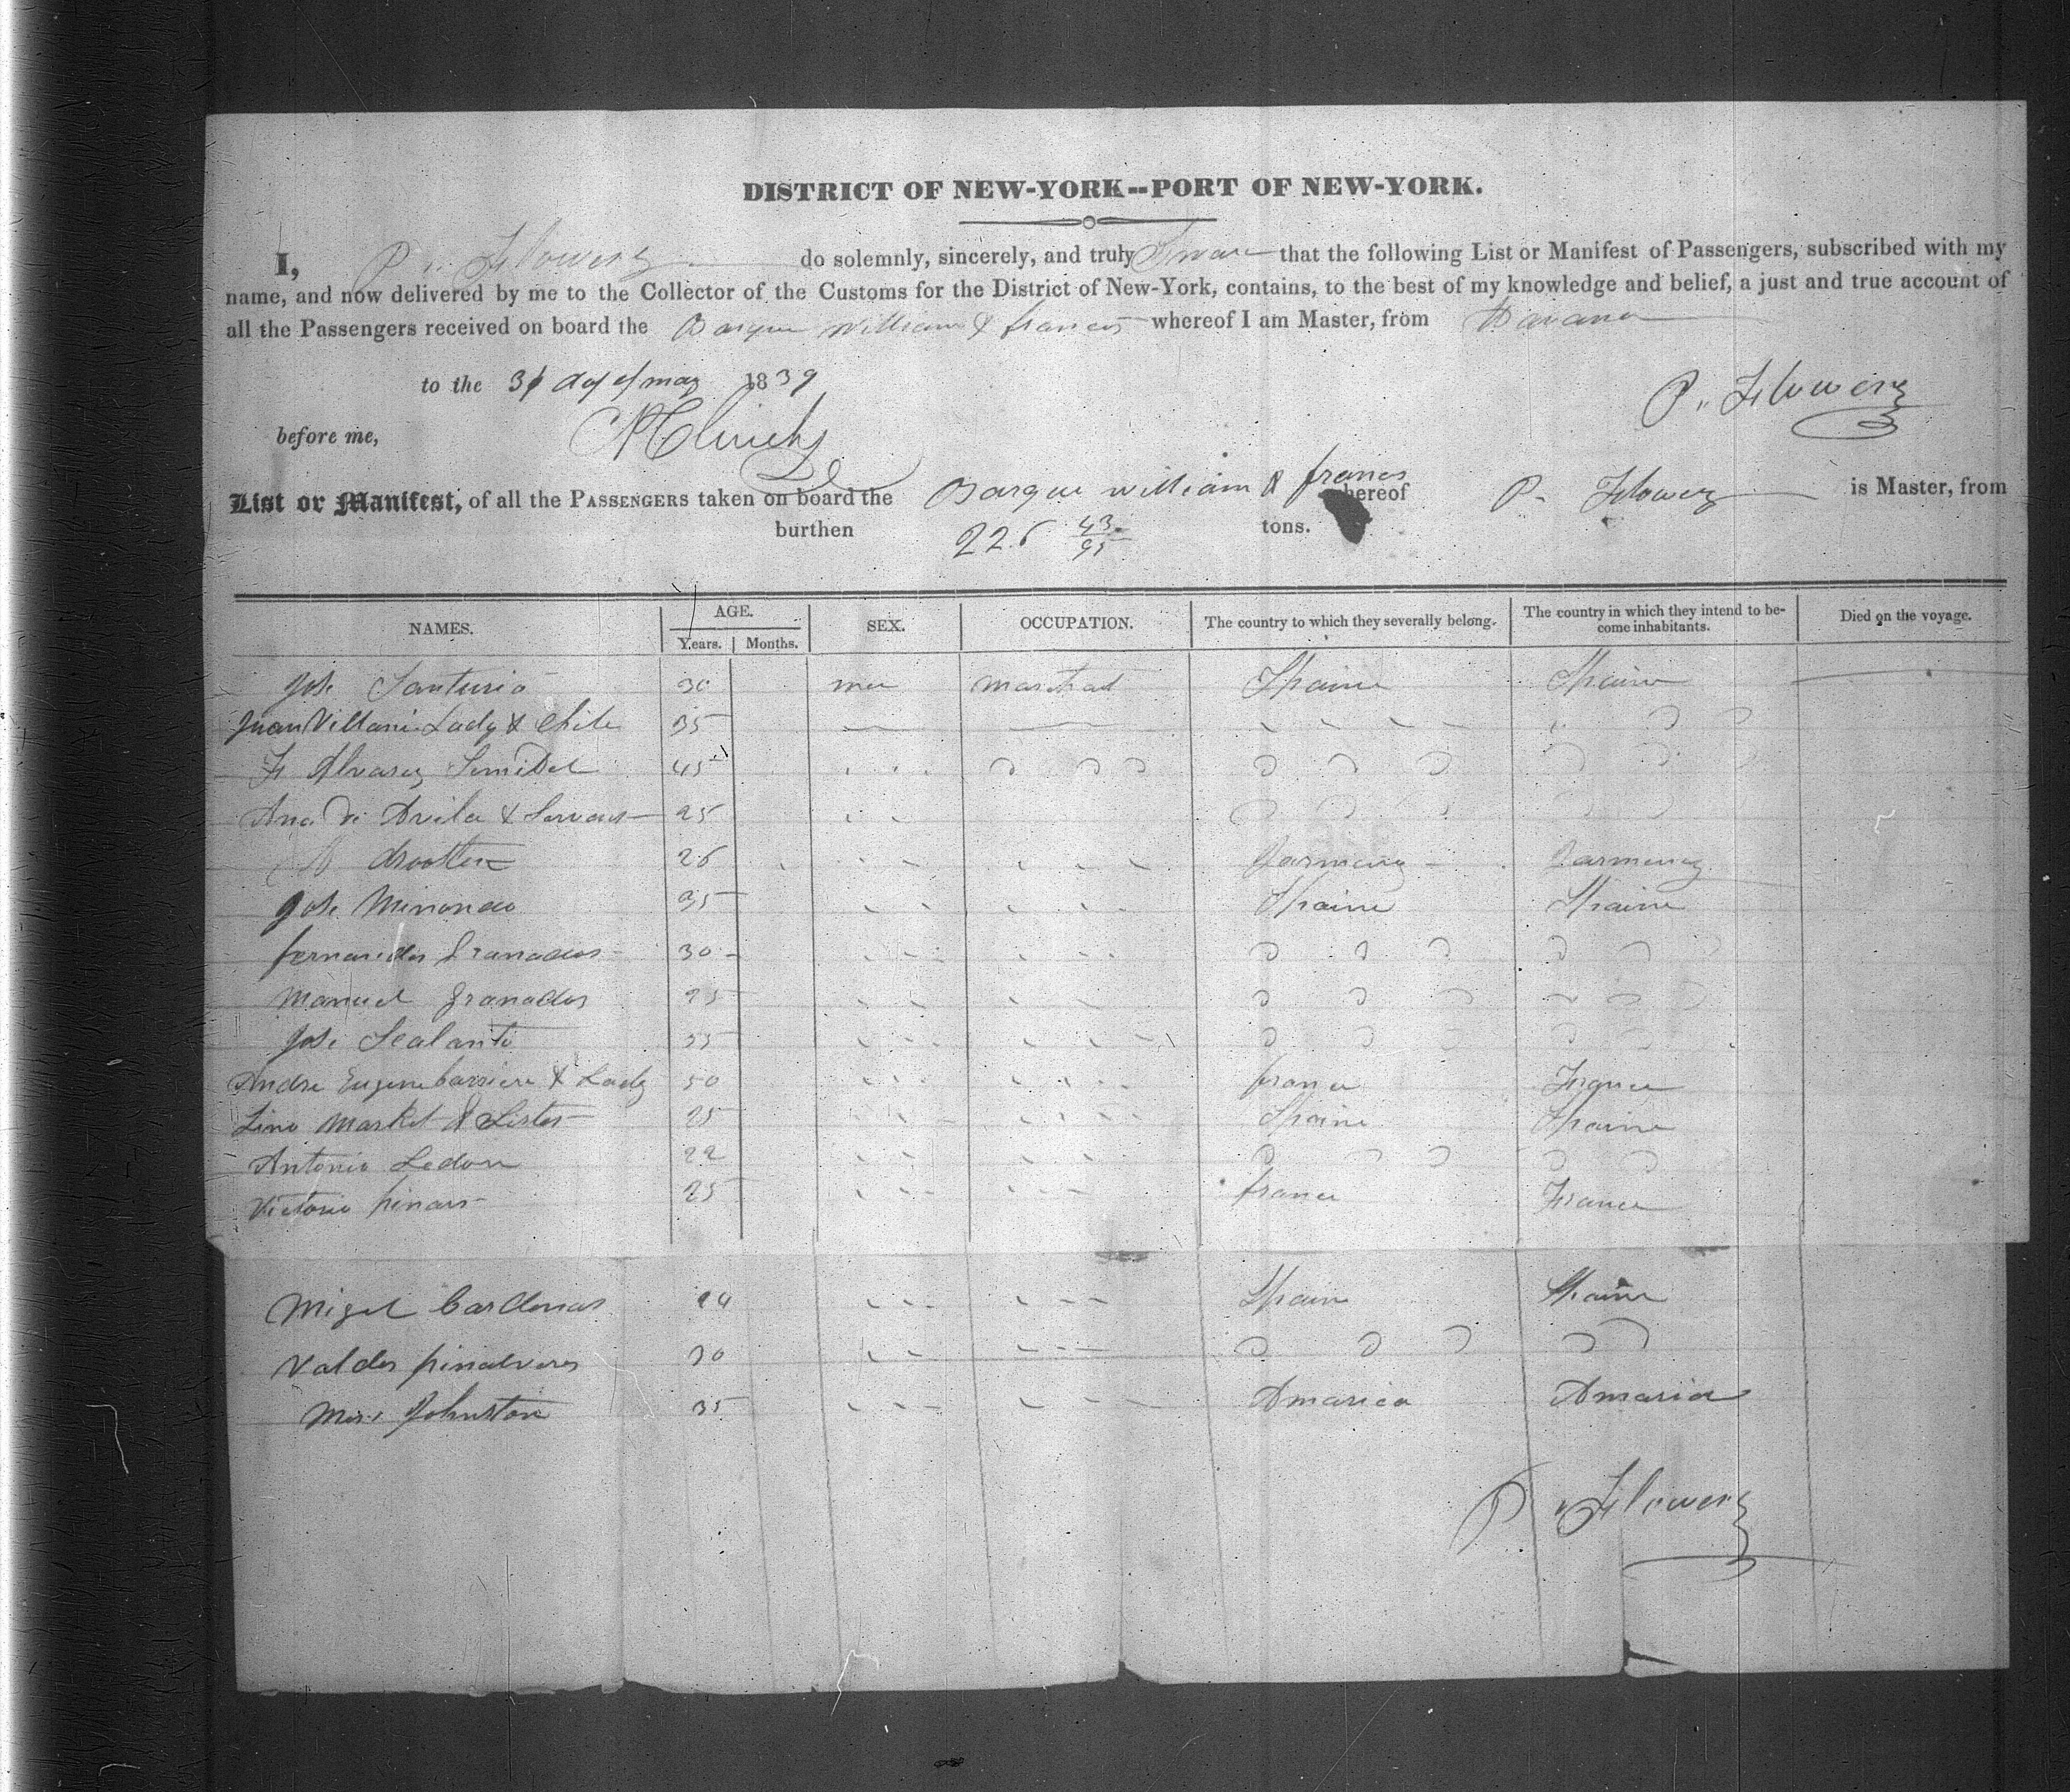 DISTRICT OF NEW-YORK--PORT OF NEW-YORK.
I, P. Flowery do solemnly, sincerely, and truly Swear that the following List or Manifest of Passengers, subscribed with my
name, and now delivered by me to the Collector of the Customs for the District of New-York, contains, to the best of my knowledge and belief, a just and true account of
all the Passengers received on board the Barque William & francis whereof I am Master, from Havana
to the 31 day of may 1839
P. Flowery
before me,
List or Manifest, of all the PASSENGERS taken on board the Barque william & francis whereof P. Flowery is Master, from
burthen 226 43/95 tons.
NAMES. AGE. SEX. OCCUPATION. The country to which they severally belong. The country in which they intend to be-
come inhabitants. Died on the voyage.
Years. Months.
Jose Santurio 30 marchat Spaine Spaine
Juan Villani Lady & Chile 35
F Alvarez 45
Ana De Avila & Servant 25
26 Jarmany Jarmany
Jose Minondo 35 Spaine Spaine
fernandos Granados 30
Manuel Granados 25
Jose 35
Andre Eugene barriere & Lady 50 france France
Lino Market & Sister 25 Spaine Spaine
Antonio Ledon 22
Victorio pinars 25 france France
Migel Cardenas 24 Spain Spaine
Valdes pinalveres 30
Mrs Johnston 35 Amarica Amarica
P. Flowery